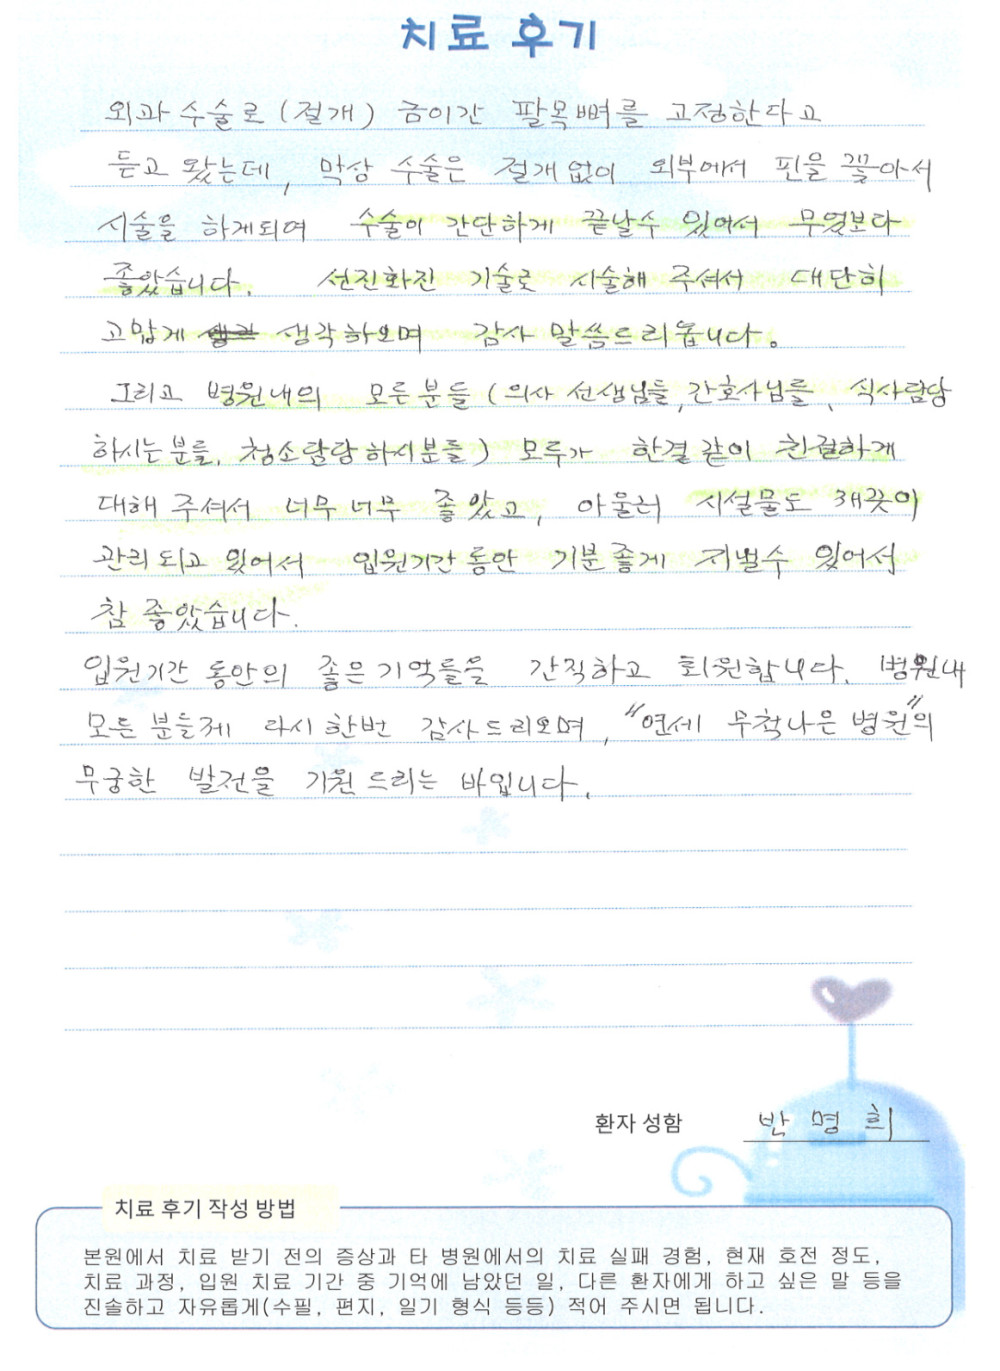 치료 후기
외과 수술로 (절개) 금이간 팔목뼈를 고정한다고
듣고 왔는데, 막상 수술은 절개없이 외부에서 핀을 꽂아서
시술을 하게되며 수술이 간단하게 끝날수 있어서 무엇보다
좋았습니다. 선진화진 기술로 시술해 주셔서 대단히
고맙게 생각하오며 감사 말씀드리옵니다.
그리고 병원내의 모든분들 (의사 선생님들, 간호사님들, 식사담당
하시는분들, 청소담당하시분들) 모두가 한결같이 친절하게
대해 주셔서 너무너무 좋았고, 아울러 시설물도 깨끗이
관리되고 있어서 입원기간동안 기분좋게 지낼수 있어서
참 좋았습니다.
입원기간 동안의 좋은기억들을 간직하고 퇴원합니다. 병원내
모든분들께 다시한번 감사드리오며, "연세 무척나은 병원"의
무궁한 발전을 기원드리는 바입니다.
환자 성함 반명희
치료 후기 작성 방법
본원에서 치료 받기 전의 증상과 타 병원에서의 치료 실패 경험, 현재 호전 정도,
치료 과정, 입원 치료 기간 중 기억에 남았던 일, 다른 환자에게 하고 싶은 말 등을
진솔하고 자유롭게(수필, 편지, 일기 형식 등등) 적어 주시면 됩니다.